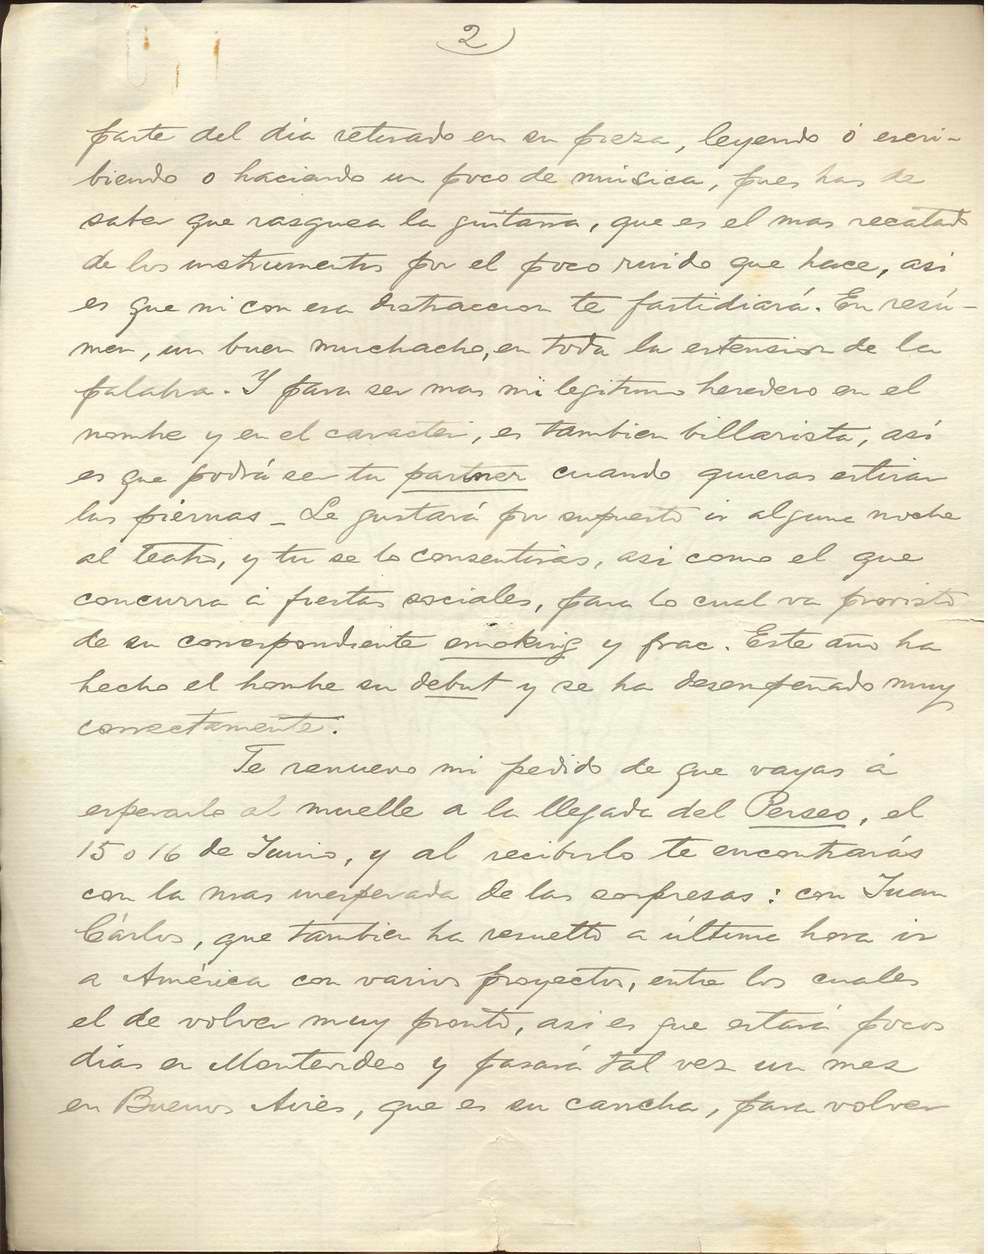 2
parte del dia retirado en su pieza, leyendo ó escri-
biendo o haciendo un poco de música, pues has de
saber que rasguea la guitarra, que es el mas recatado
de los instrumentos por el poco ruido que hace, asi
es que ni con esa distraccion te fastidiará. En resú-
men, un buen muchacho, en toda la estension de la
palabra. Y para ser mas mi legitimo heredero en el
nombre y en el caracter, es tambien billarista, así
es que podrá ser tu partner cuando quieras estirar
las piernas - Le gustará por supuesto ir alguna noche
al teatro, y tu se lo consentirás, asi como el que
concurra á fiestas sociales, para lo cual va provisto
de su correspondiente smoking y frac. Este año ha
hecho el hombre su debut y se ha desempeñado muy
correctamente.
Te renuevo mi pedido de que vayas á
esperarlo al muelle a la llegada del Perseo, el
15 o 16 de Junio, y al recibirlo te encontrarás
con la mas inesperada de las sorpresas: con Juan
Cárlos, que tambien ha resuelto a última hora ir
a América con varios proyectos, entre los cuales
el de volver muy pronto, asi es que estará pocos
dias en Montevideo y pasará tal vez un mes
en Buenos Aires, que es su cancha, para volver